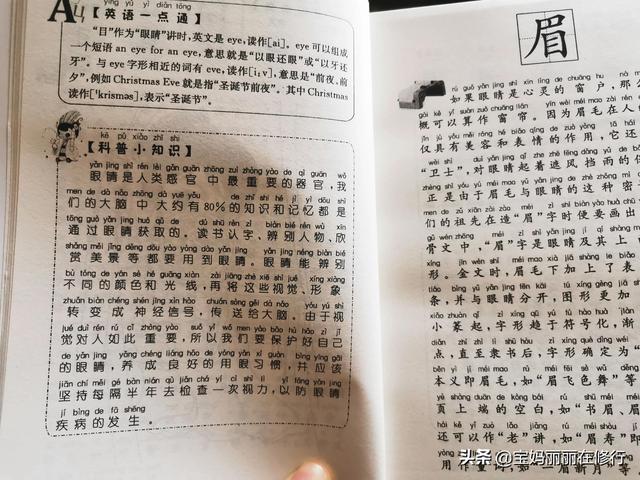 【英语一点通】
“目”作为“眼睛”讲时，英文是 eye，读作[ai]。eye 可以组成
一个短语 an eye for an eye，意思就是“以眼还眼”或“以牙还
牙”。与 eye 字形相近的词有 eve，读作[iːv]，意思是“前夜、前
夕”，例如 Christmas Eve 就是指“圣诞节前夜”。其中 Christmas
读作['krisməs]，表示“圣诞节”。
kē pǔ xiǎo zhī shi
【科普小知识】
眼睛是人类感官中最重要的器官，我
们的大脑中大约有 80% 的知识和记忆都是
通过眼睛获取的。读书认字、辨别人物、欣
赏美景等都要用到眼睛。眼睛能辨别
不同的颜色和光线，再将这些视觉、形象
转变成神经信号，传送给大脑。由于视
觉对人如此重要，所以我们要保护好自己
的眼睛，养成良好的用眼习惯，并应该
坚持每隔半年去检查一次视力，以防眼睛
疾病的发生。
眉
如果眼睛是心灵的窗户，那么
概可以算作窗帘。因为眉毛在人
仅具有美容和表情的作用，它还
“卫士”，对眼睛起着遮风挡雨的作
正是由于眉毛与眼睛的这种密
们的祖先在造“眉”字时便要画出
骨文中，“眉”字是眼睛及其上
形。金文时，眉毛下加上了表
条，并与眼睛分开，图形更加
小篆起，字形趋于符号化，渐
点，直至隶书后，字形确定为“
本义即眉毛，如“眉飞色舞”等
页上端的空白，如“书眉、眉
还可以作“老”讲，如“眉寿”即
用作量词，如“一眉新月”等
头条 @宝妈丽丽在修行